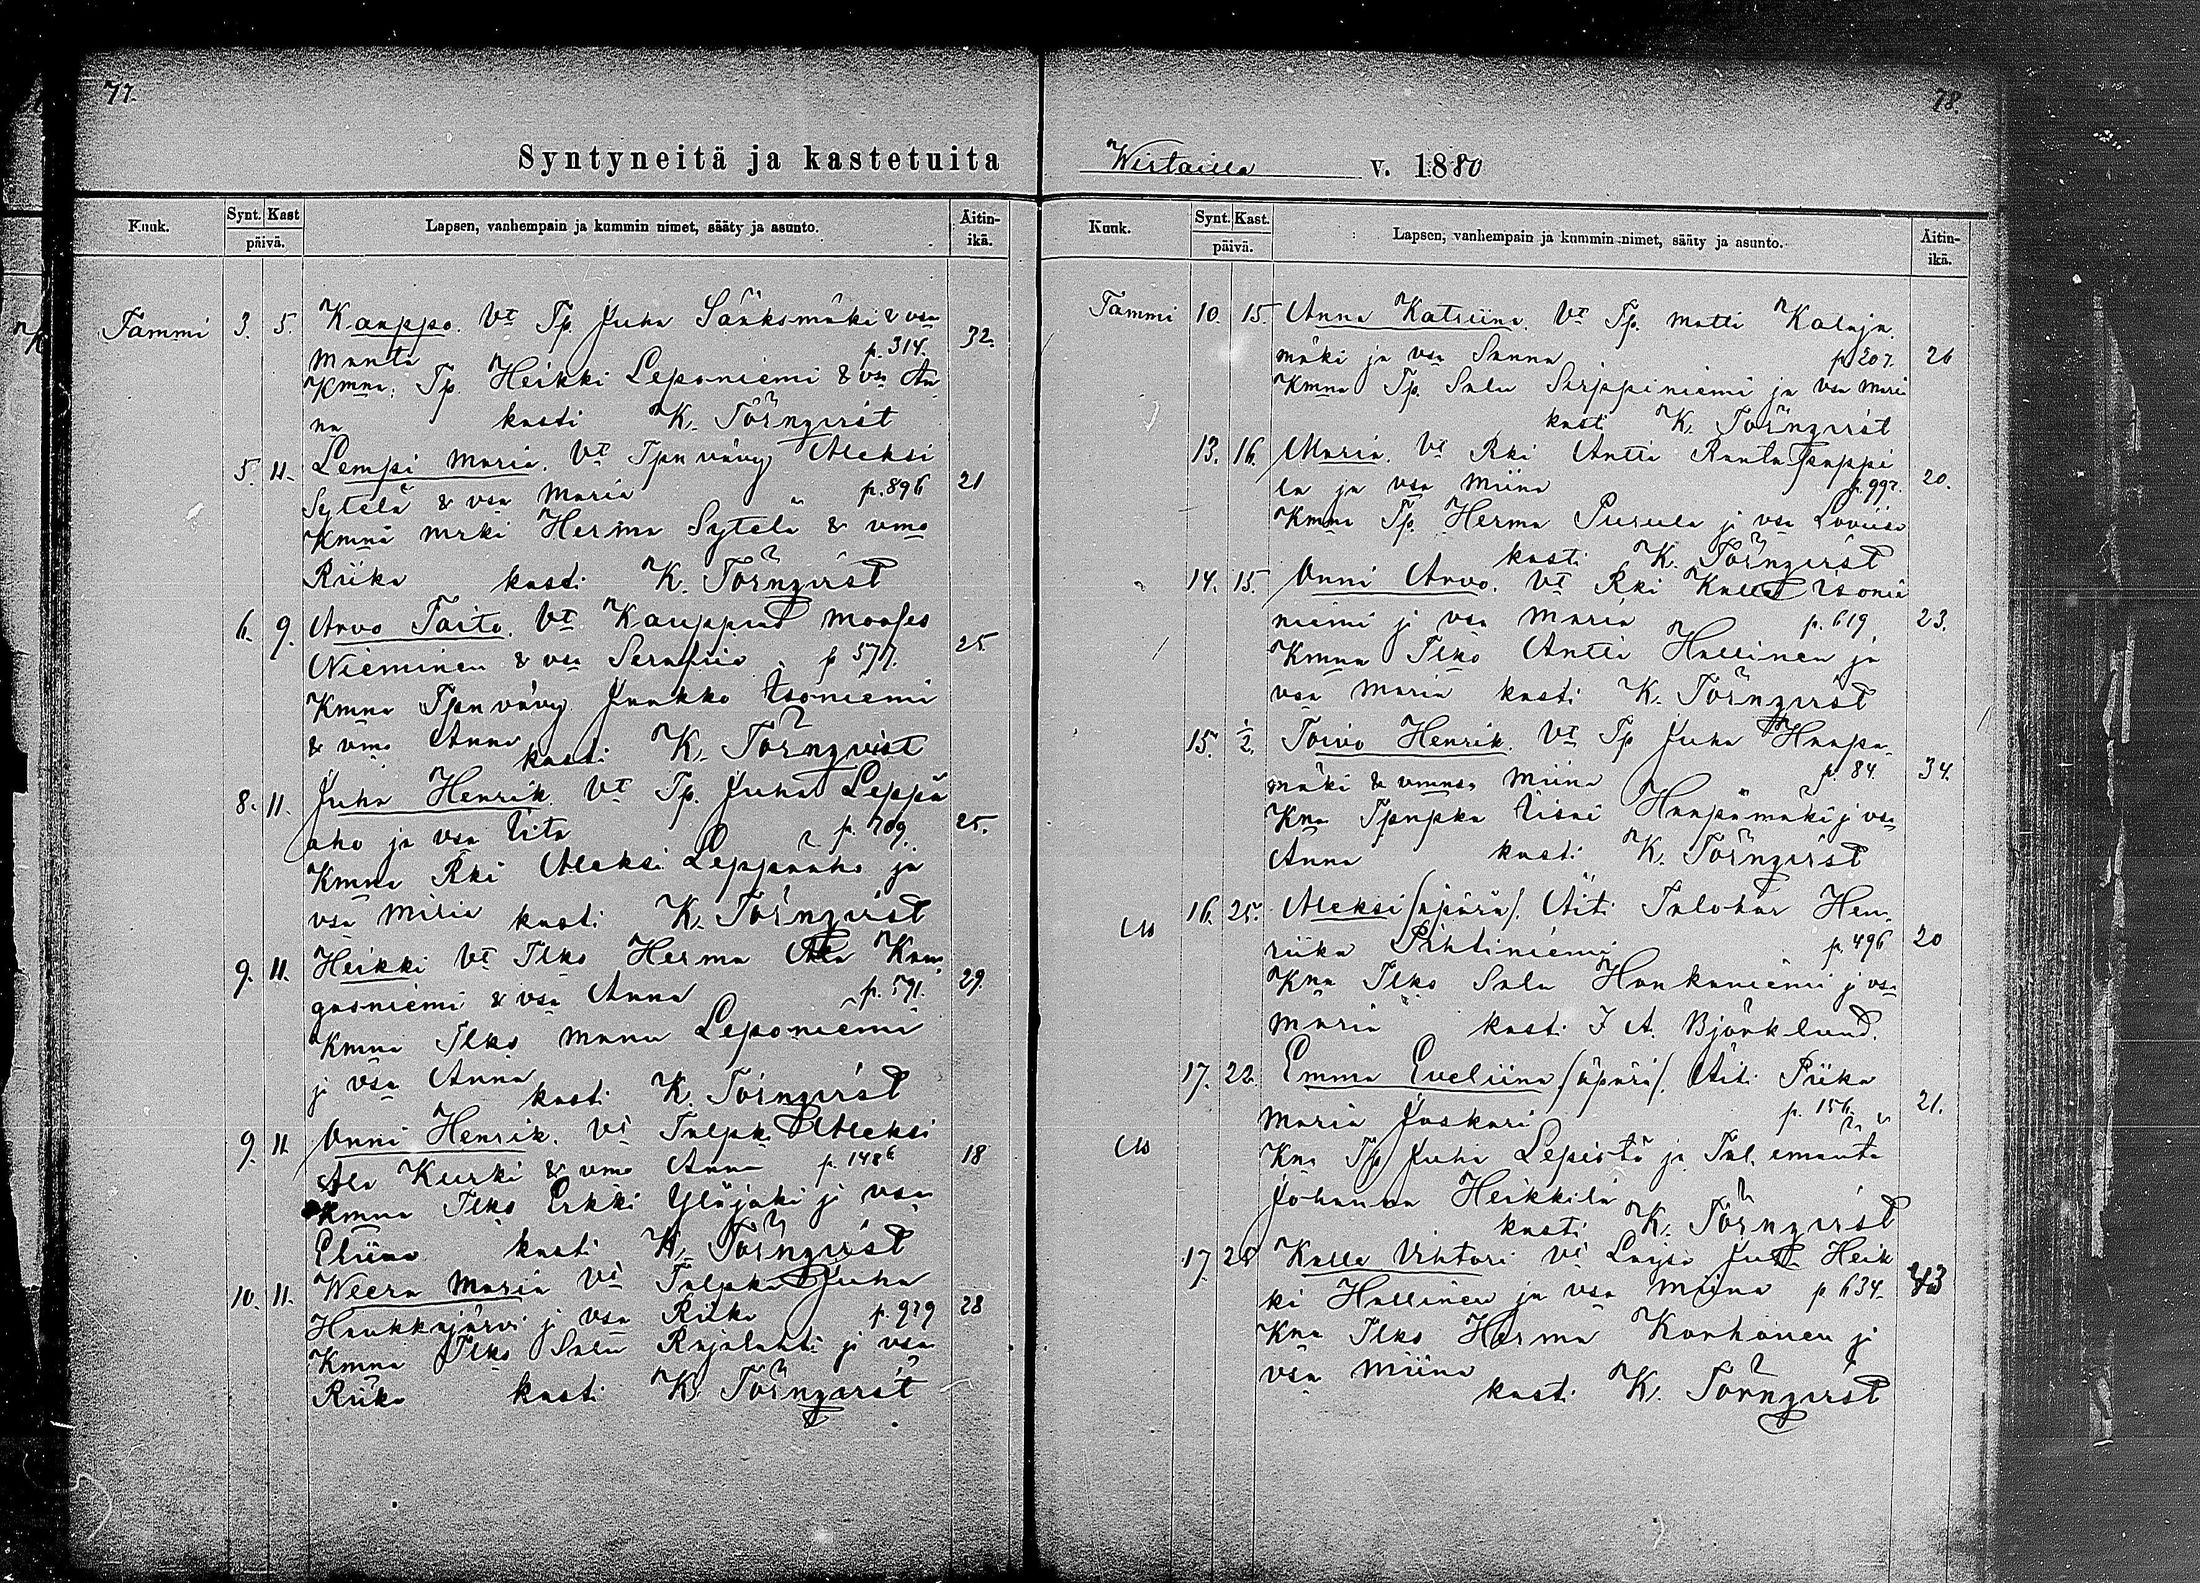 77.
Syntyneitä ja kastetuita
Kuuk.
Synt. Kast
päivä.
Lapsen, vanhempain ja kummin nimet, sääty ja asunto.
Äitin-
ikä.
Tammi 3. 5. Kauppo. Vt Tp. Juha Sääksmäki & vsa 32.
Manta p. 314.
Kmna. Tp Heikki Leponiemi & vsa An
na kasti K. Törnqvist
5. 11. Lempi Maria. Vt Tpn vävy Aleksi 21
Sytelä & vsa Maria p. 896
Kmna mrki Herma Sytelä & vmo
Riika kasti K. Törnqvist
6. 9. Arvo Taito. Vt. Kauppias Mooses 25
Nieminen & vsa Serafiia p 577.
Kmna Tpn vävy Jaakko Isoniemi
& vmo Anna kasti K. Törnqvist
8. 11. Juho Henrik. Vt Tp. Juha Leppä
aho ja vsa Iita p. 709. 25.
Kmna Rki Aleksi Leppäaho ja
vsa Miina kasti K. Törnqvist
9. 11. Heikki Vt Ilko Herma Ala Kan
gasniemi & vsa Anna p. 591. 29.
Kmna Ilko Manu Leponiemi
j vsa Anna kasti K. Törnqvist
9. 11. Onni Henrik. Vt Talpk. Aleksi
Ala Kurki & vmo Anna p. 1486 18
Kmna Ilko Erkki Yläjoki j vsa
Eliina kasti K. Törnqvist
10. 11. Weera Maria Vt Talpka Juha
Haukkajärvi j vsa Riika p. 979 28
Kmna Ilko Salu Rajalahti j vsa
Riika kasti K. Törnqvist
78.
Wirtailla v. 1880
Kuuk.
Synt. Kast.
päivä.
Lapsen, vanhempain ja kummin nimet, sääty ja asunto.
Äitin-
ikä.
Tammi 10. 15. Anna Katriina. Vt Tp. Matti Kalaja
mäki ja vsa Sanna p. 207. 26
Kmna Tp. Salu Sirppiniemi ja vsa Mari
kasti K. Törnqvist
13. 16. Maria. Vt Rki Antti Rantatpappi
la ja vsa Miina p. 997. 20.
Kmna Tp. Herma Purula j vsa Loviisa
kasti K. Törnqvist
14. 15. Onni Arvo. Vt Rki Kalle Isonii
niemi j vsa Maria p. 619 23.
Kmna Ilko Antti Hallinen ja
vsa Maria kasti K. Törnqvist
15. 1/2. Toivo Henrik. Vt Tp Juha Haapa-
mäki & vmnsa Miina p. 84. 34.
Kna Tpnpka Iisai Haapamäki j vsa
Anna kasti K. Törnqvist
16. 25. Aleksi /äpärä/. Äiti Talohar Hen-
riika Pihtiniemi p. 496 20
Kna Ilko Salu Hankaniemi j vsa
Maria kasti I A. Björklund.
17. 22. Emma Eveliina /äpärä/. Äiti Piika
Maria Jaskari p. 156 21.
Kna Tp Juha Lepistö ja Tal. emäntä
Johanna Heikkilä
kasti K. Törnqvist
17 25 Kalle Vihtori Vt Juho Heik
ki Hallinen ja vsa Miina p 634. 43
Kna Ilko Herma Korhonen ja
vsa Miina
kasti K. Törnqvist